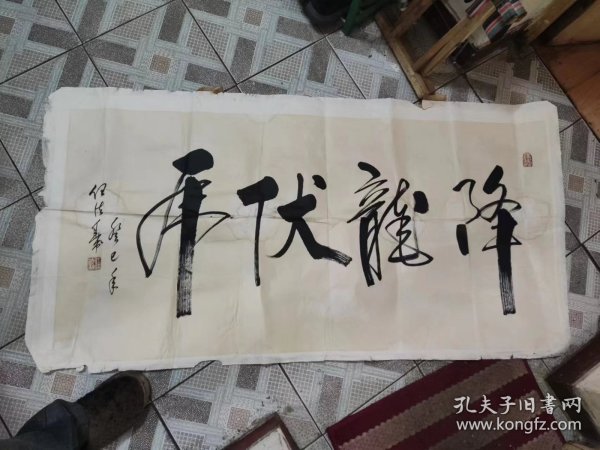 降龍伏虎
癸巳年
孔夫子旧書网
www.kongfz.com